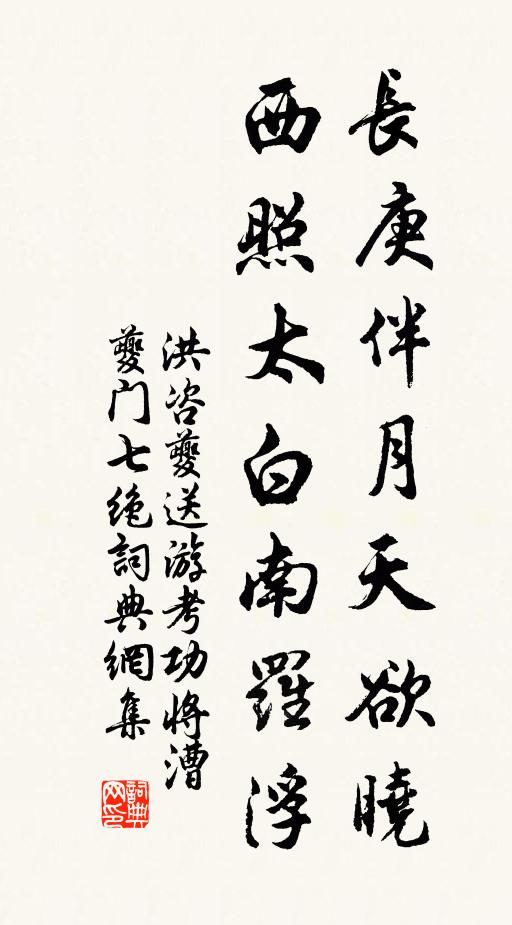 長庚伴月天欲曉
西照太白南羅浮
洪咨夔送游考功將漕
夔門七絕詞典網集
詞典
网印